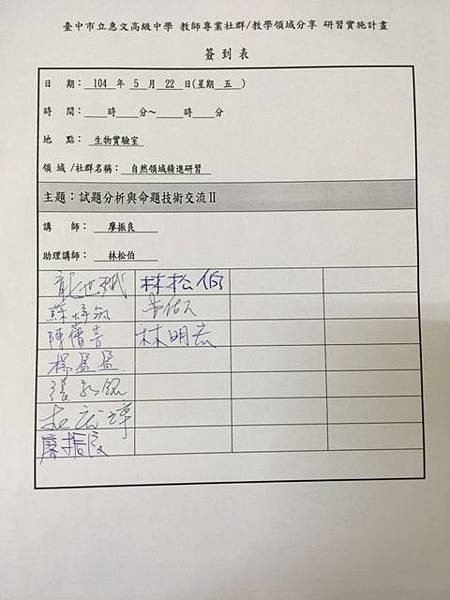 臺中市立惠文高級中學 教師專業社群/教學領域分享 研習實施計畫
簽到表
日 期: 104 年 5 月 22 日(星期 五 )
時 間: 時 分~ 時 分
地 點: 生物實驗室
領域/社群名稱: 自然領域精進研習
主題:試題分析與命題技術交流Ⅱ
講 師: 廖振良
助理講師: 林松伯
林松伯
林明宏
楊盈盈
廖振良